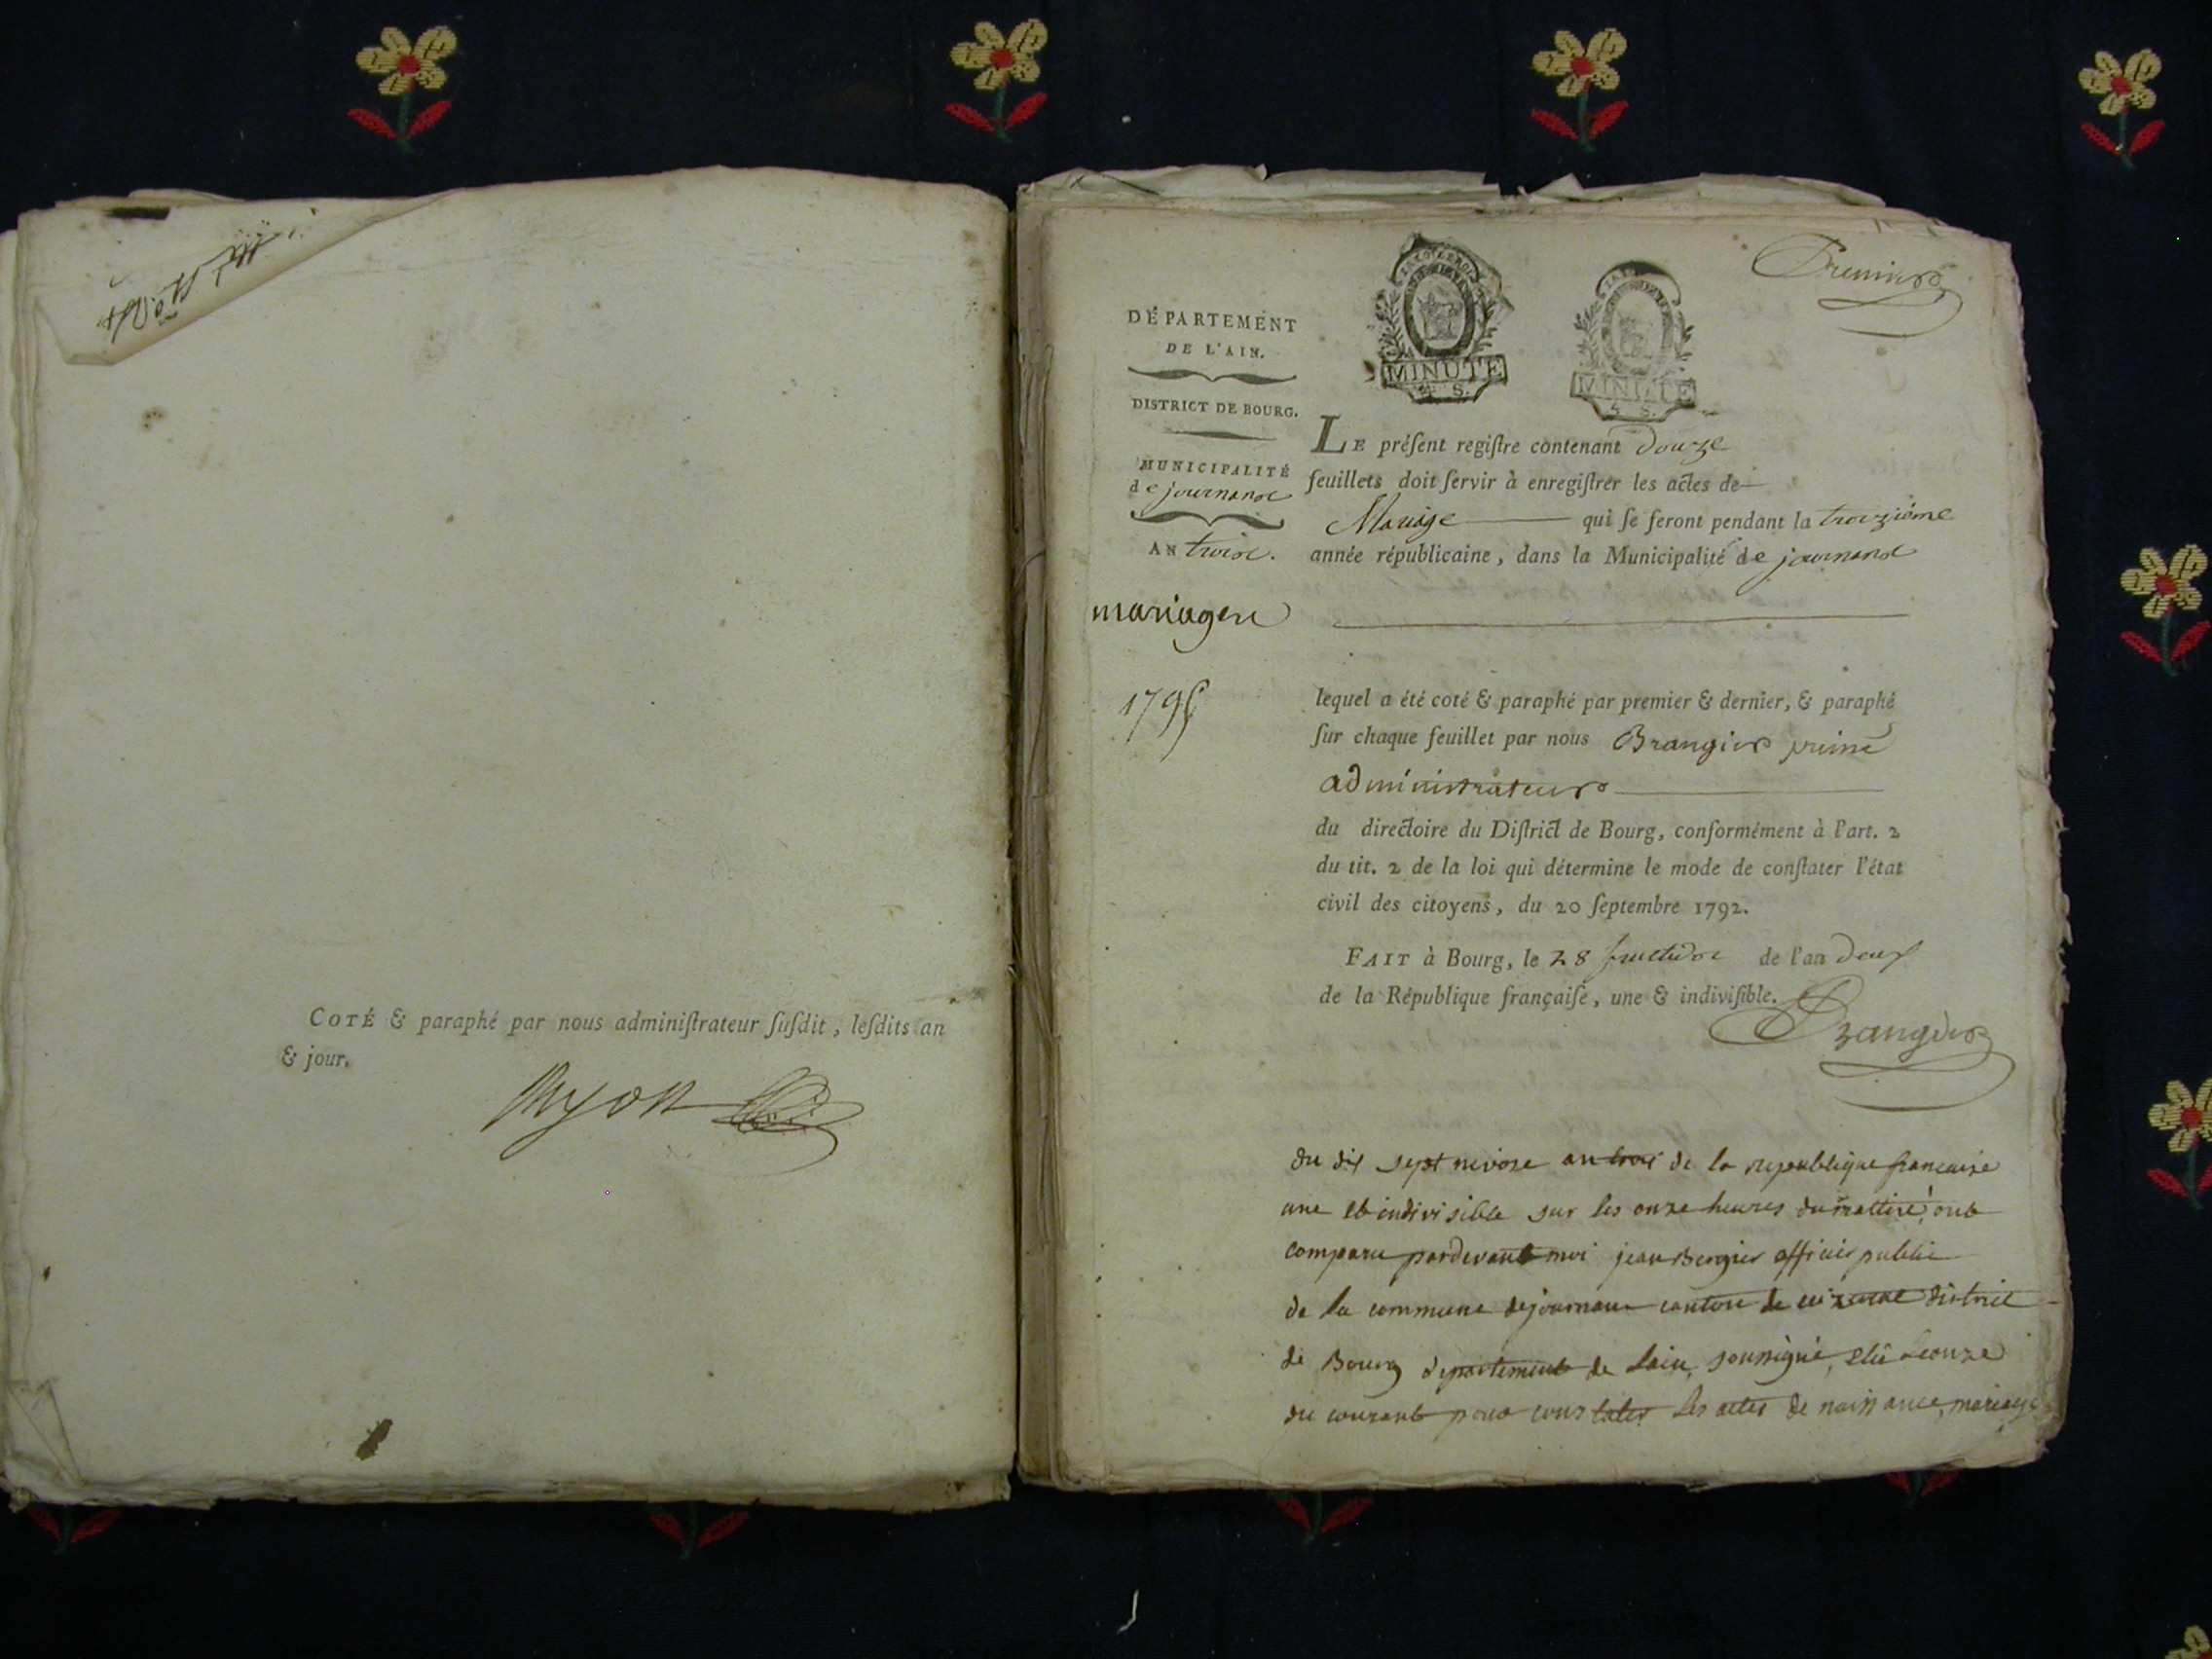 COTÉ & paraphé par nous adminiſtrateur ſuſdit, leſdits an
& jour.
Premier
DÉPARTEMENT
DE L'AIN.
DISTRICT DE BOURG.
MUNICIPALITÉ
de journans
AN trois.
mariages
1795
MINUTE
4 S.
MINUTE
4 S.
LE préſent regiſtre contenant douze
feuillets doit ſervir à enregiſtrer les actes de
Mariage qui ſe feront pendant la troizième
année républicaine, dans la Municipalité de journans
lequel a été coté & paraphé par premier & dernier, & paraphé
ſur chaque feuillet par nous Brangier
administrateur
du directoire du Diſtrict de Bourg, conformément à l'art. 2
du tit. 2 de la loi qui détermine le mode de conſtater l'état
civil des citoyens, du 20 ſeptembre 1792.
FAIT à Bourg, le 28 fructidor de l'an deux
de la République françaiſe, une & indiviſible.
Brangier
du dix sept nivose an trois de la republique francaise
une et indivisible sur les onze heures du mattin, ont
comparu pardevant moi jean Bergier officier public
de la commune de journans canton de district
de Bourg departement de lain, soussigné, élû le onze
du courant pour constater les actes de naissance, mariage